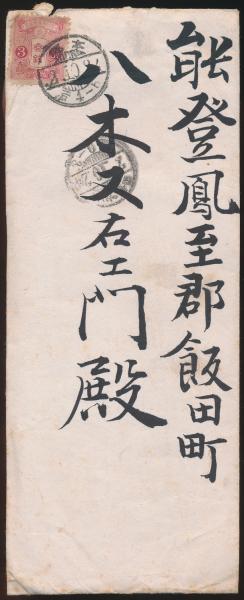 能登鳳至郡飯田町
八木又右エ門殿
3